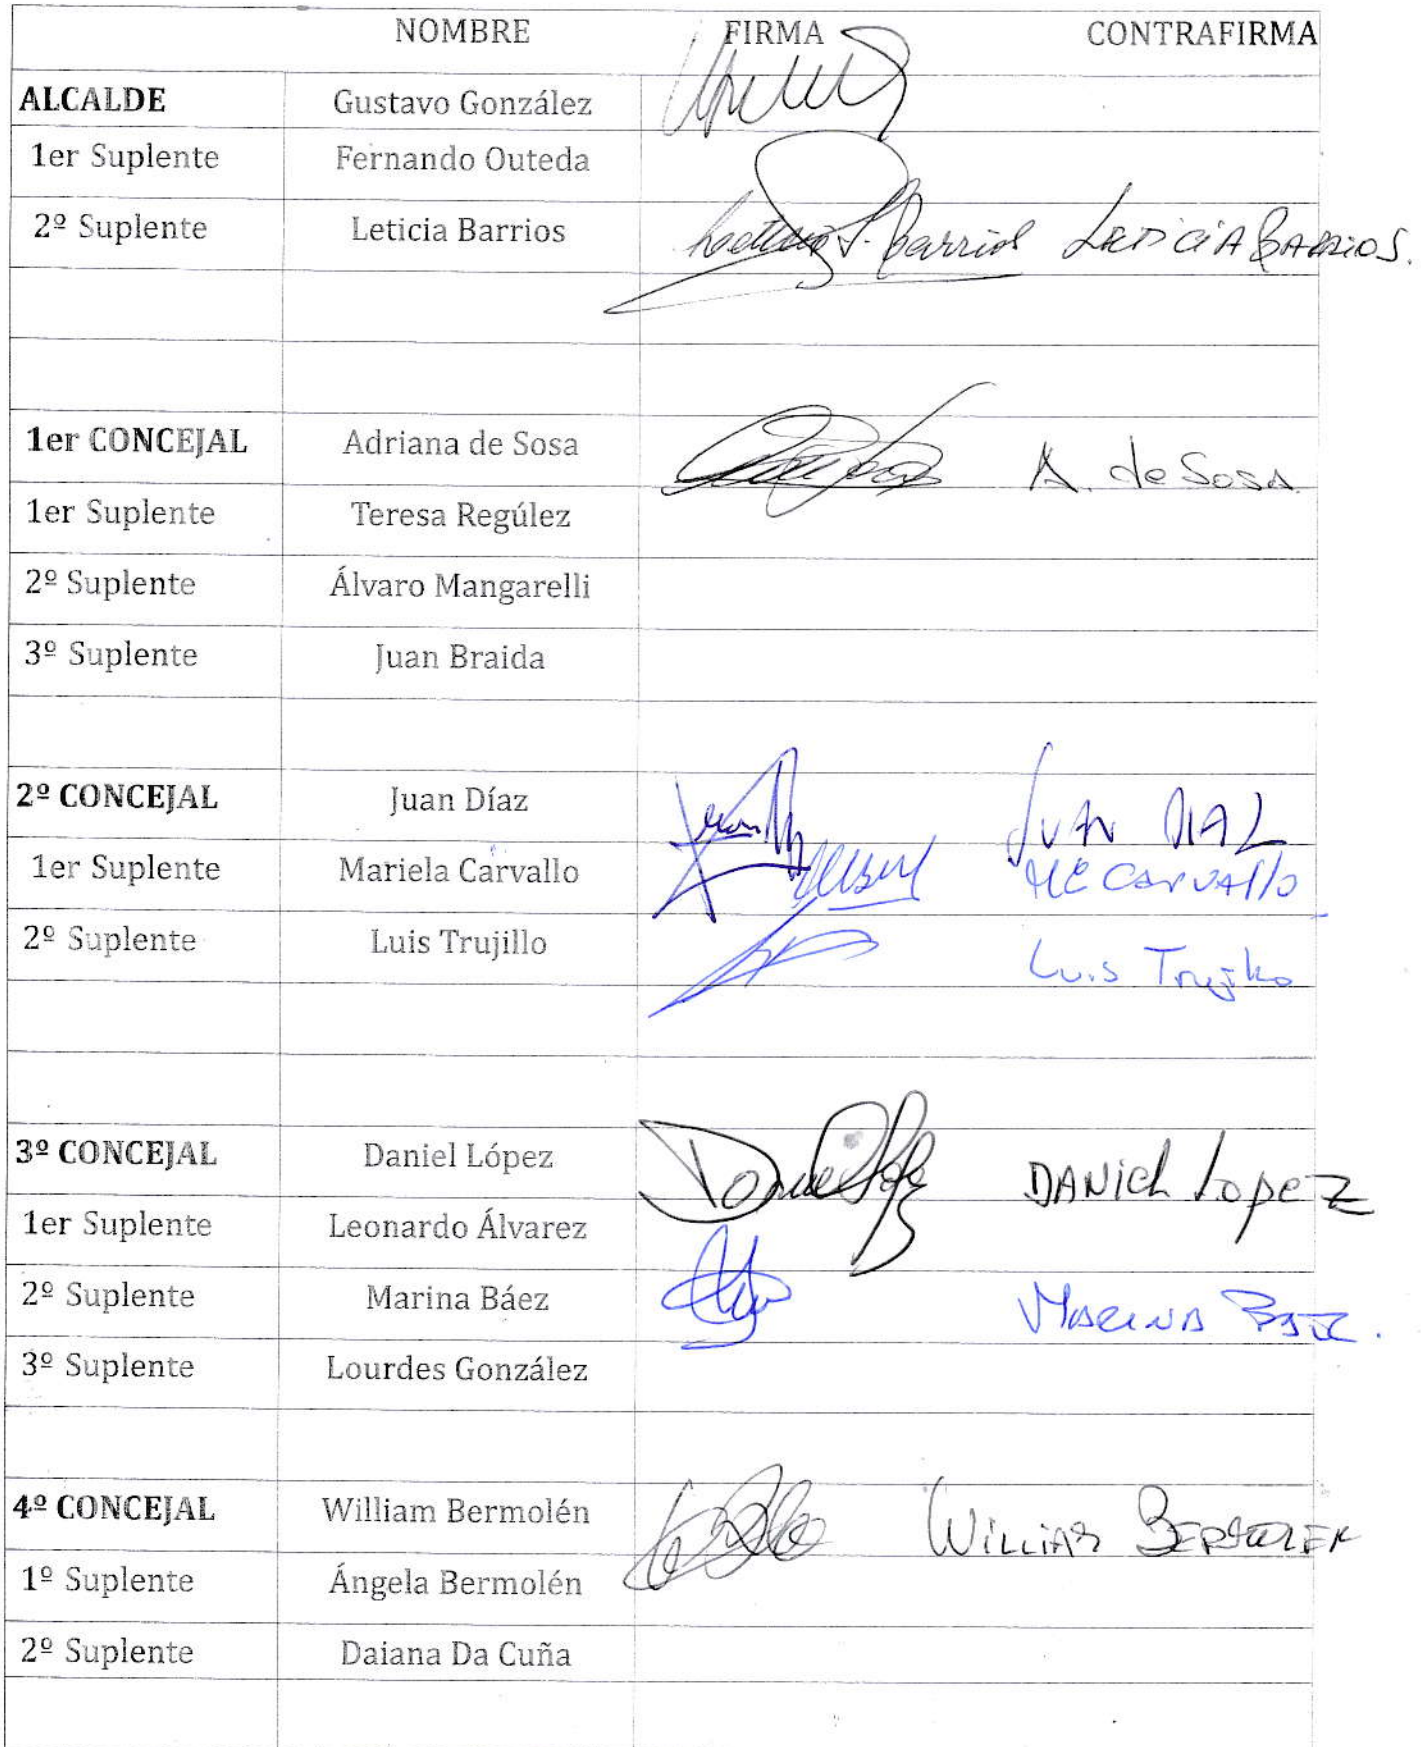 NOMBRE FIRMA CONTRAFIRMA
ALCALDE Gustavo González
1er Suplente Fernando Outeda
2º Suplente Leticia Barrios Leticia S. Barrios LETICIA BARRIOS.
1er CONCEJAL Adriana de Sosa A. de Sosa
1er Suplente Teresa Regúlez
2º Suplente Álvaro Mangarelli
3º Suplente Juan Braida
2º CONCEJAL Juan Díaz JUAN DIAZ
1er Suplente Mariela Carvallo CARVAllo
2º Suplente Luis Trujillo Luis Trujillo
3º CONCEJAL Daniel López DANIEL Lopez
1er Suplente Leonardo Álvarez
2º Suplente Marina Báez MARINA BAEZ.
3º Suplente Lourdes González
4º CONCEJAL William Bermolén WILLIAM BERMOLEN
1º Suplente Ángela Bermolén
2º Suplente Daiana Da Cuña